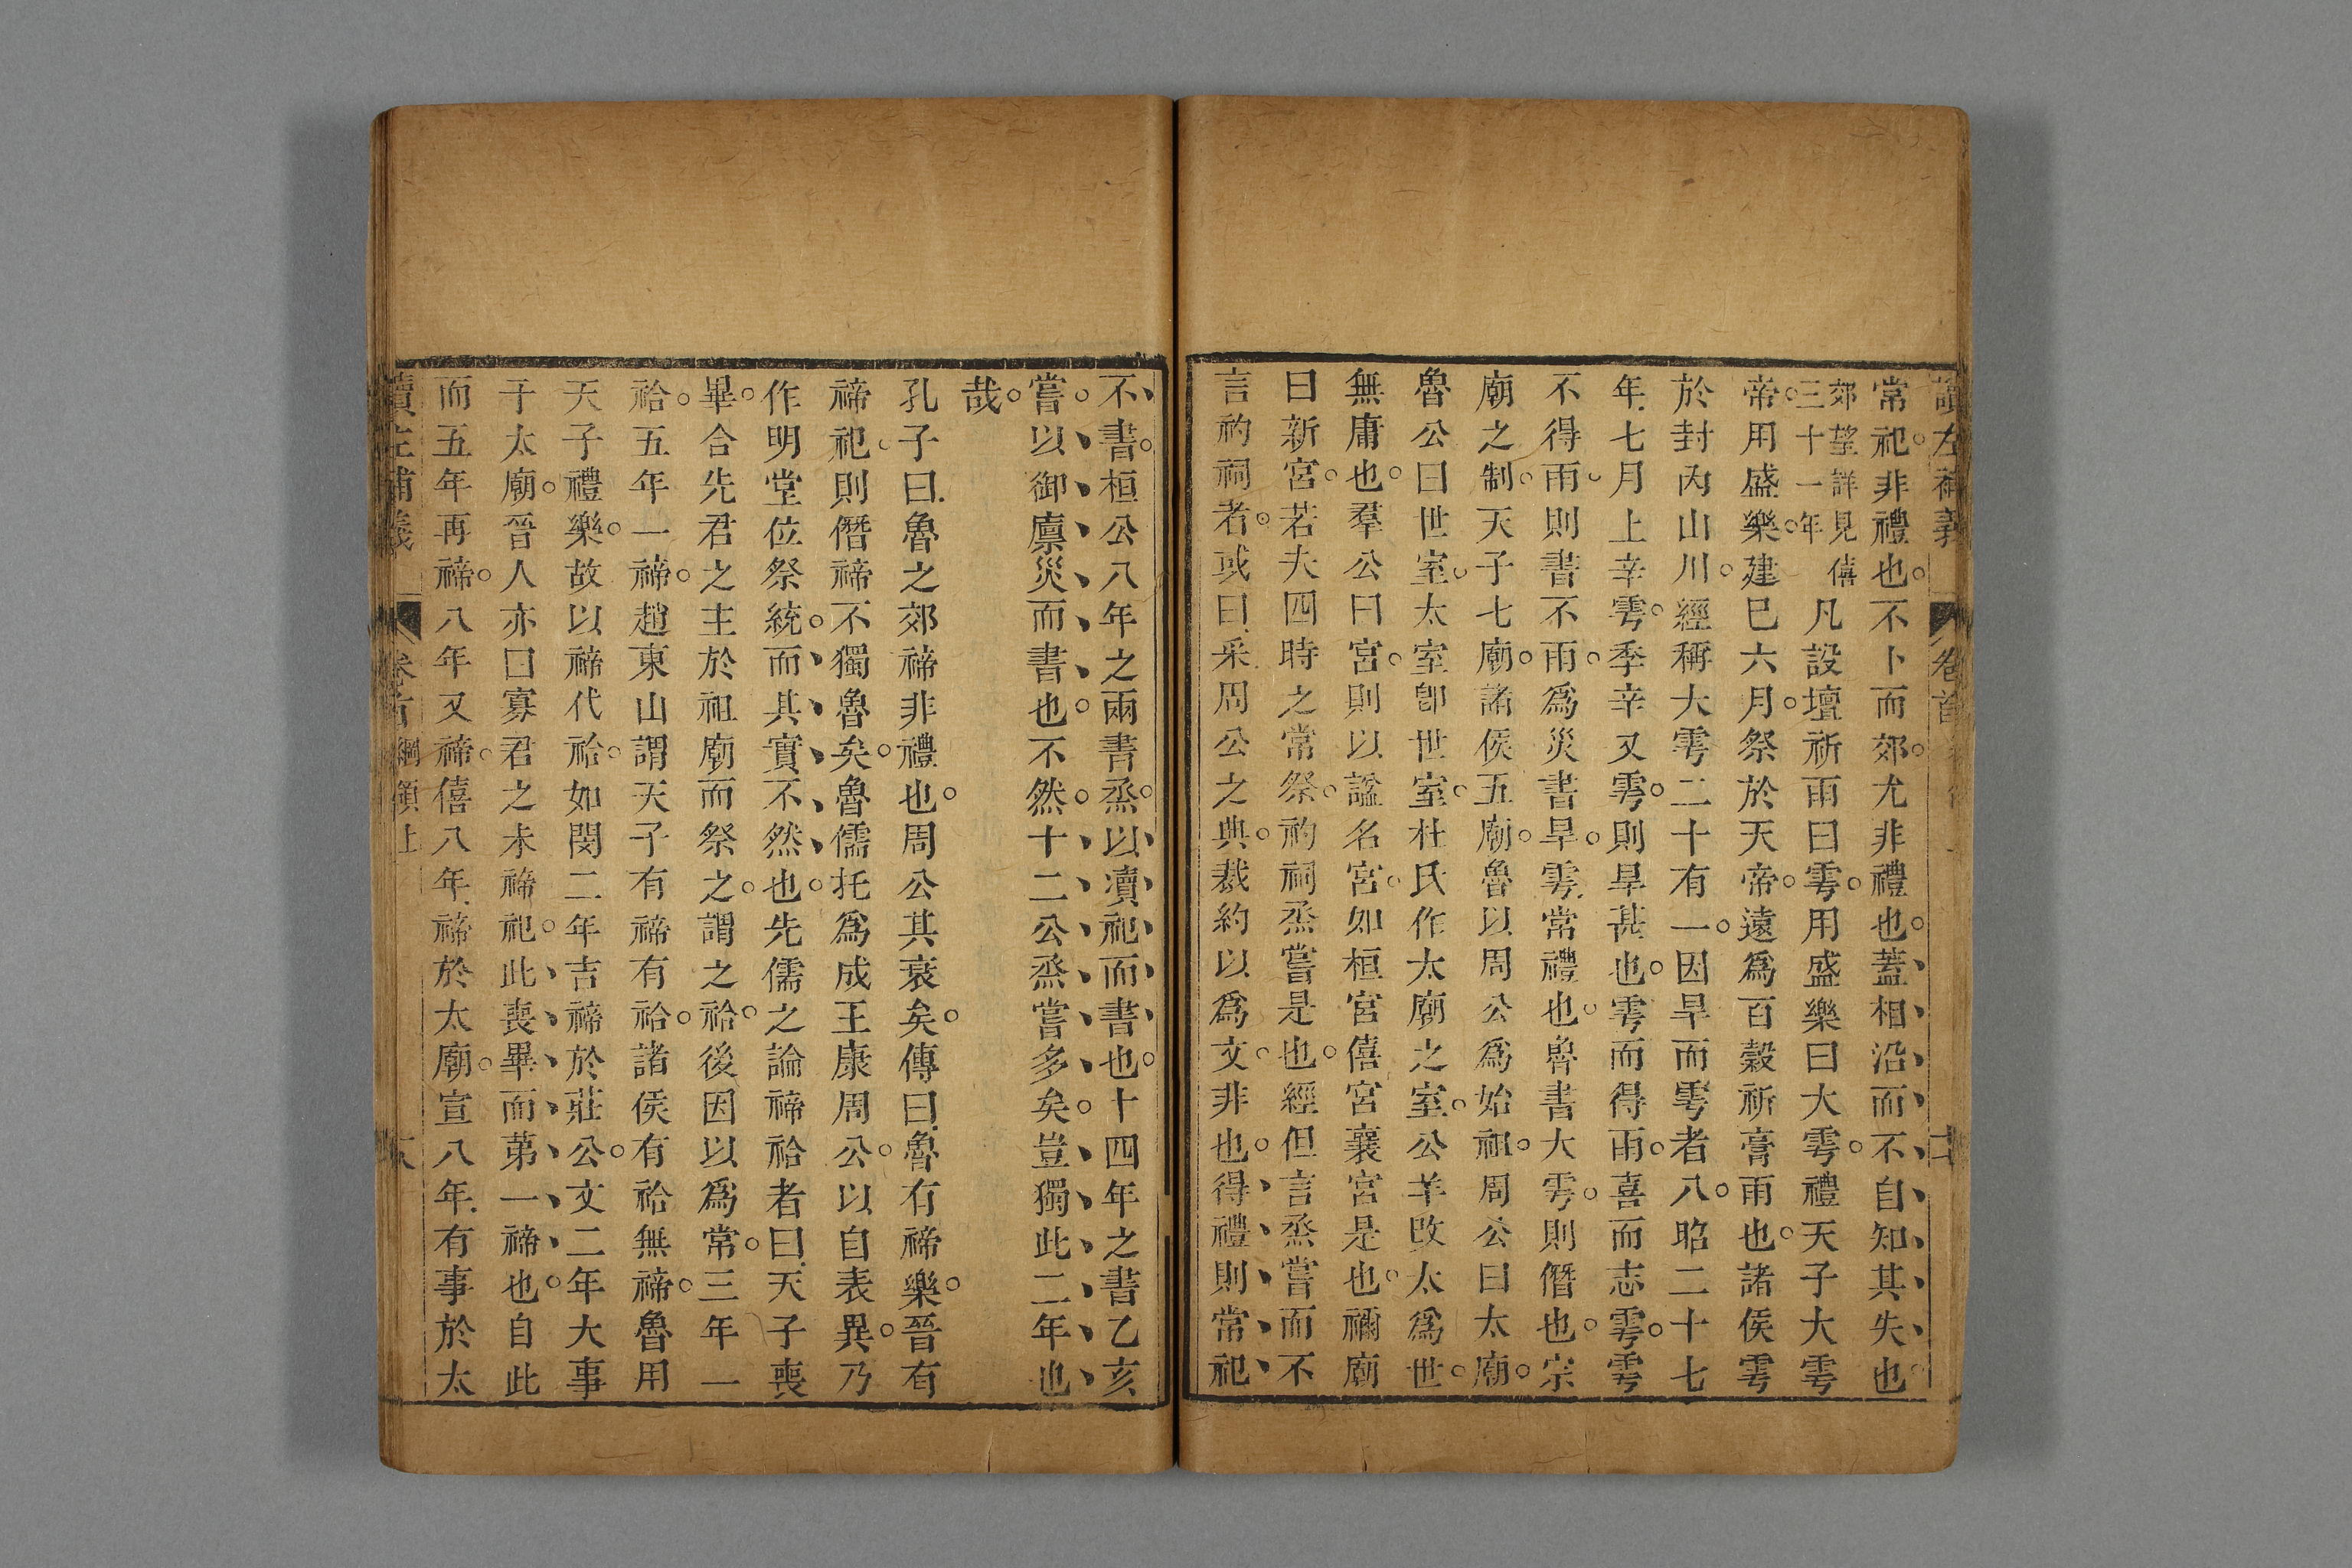 讀左補義
卷首
常祀非禮也不卜而郊尤非禮也蓋相沿而不自知其失也
郊望詳見僖
三十一年
凡設壇祈雨曰雩用盛樂曰大雩禮天子大雩
帝用盛樂建巳六月祭於天帝遠爲百穀祈膏雨也諸侯雩
於封內山川經稱大雩二十有一因旱而雩者八昭二十七
年七月上辛雩季辛又雩則旱甚也雩而得雨喜而志雩雩
不得雨則書不雨爲災書旱雩常禮也魯書大雩則僭也宗
廟之制天子七廟諸侯五廟魯以周公爲始祖周公曰太廟
魯公曰世室太室卽世室杜氏作太廟之室公羊改太爲世
無庸也羣公曰宮則以謚名宮如桓宮僖宮襄宮是也禰廟
曰新宮若夫四時之常祭礿祠烝嘗是也經但言烝嘗而不
言礿祠者或曰采周公之典裁約以爲文非也得禮則常祀
不書桓公八年之兩書烝以瀆祀而書也十四年之書乙亥
嘗以御廩災而書也不然十二公烝嘗多矣豈獨此二年也
哉
孔子曰魯之郊禘非禮也周公其衰矣傳曰魯有禘樂晉有
禘祀則僭禘不獨魯矣魯儒托爲成王康周公以自表異乃
作明堂位祭統而其實不然也先儒之論禘祫者曰天子喪
畢合先君之主於祖廟而祭之謂之祫後因以爲常三年一
祫五年一禘趙東山謂天子有禘有祫諸侯有祫無禘魯用
天子禮樂故以禘代祫如閔二年吉禘於莊公文二年大事
于太廟晉人亦曰寡君之未禘祀此喪畢而第一禘也自此
而五年再禘八年又禘僖八年禘於太廟宣八年有事於太
讀左補義
卷首
綱領上